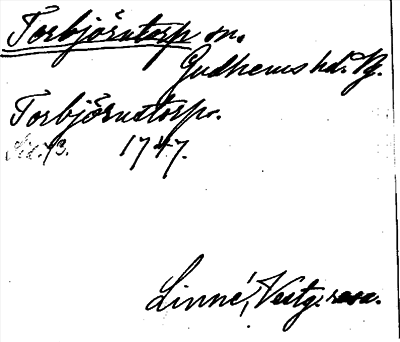 Torbjörntorp sn.
Gudhems hd. Vg.
Torbjörnstorp.
Sid. 73. 1747.
Linné, Vestg. resa.